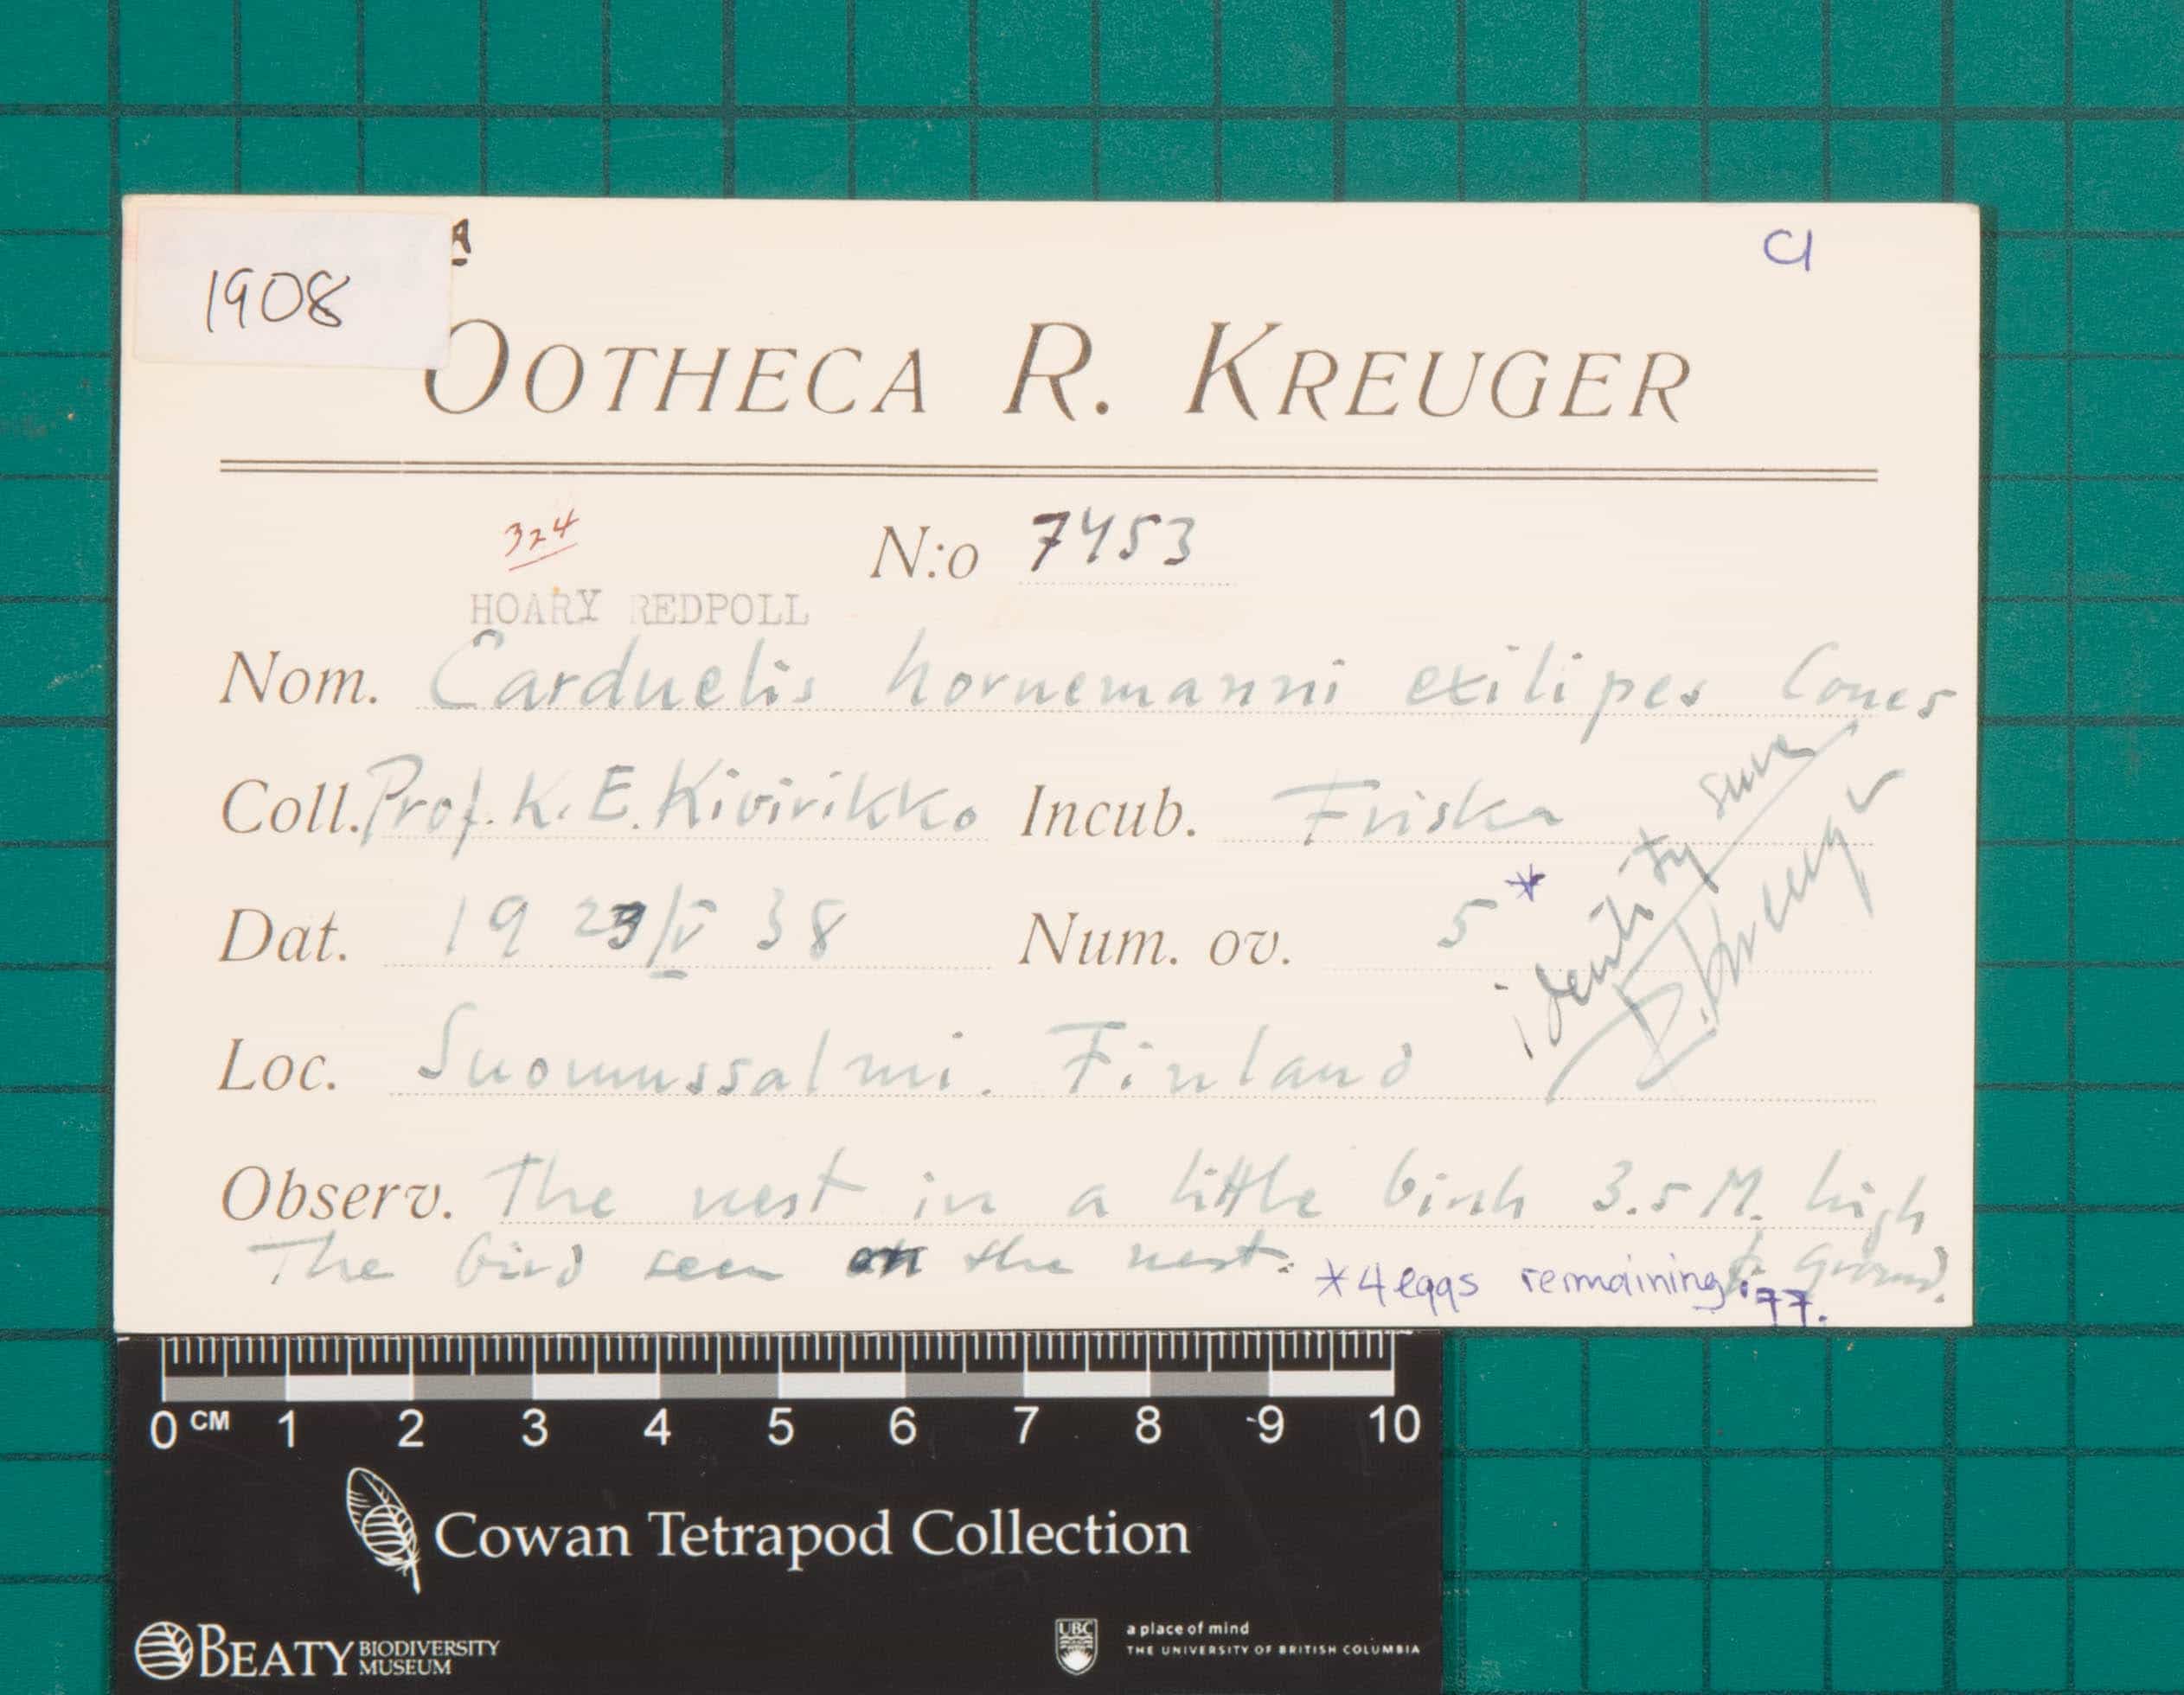 1908 A C1
OOTHECA R. KREUGER
324 N:o 7453
HOARY REDPOLL
Nom. Carduelis hornemanni exilipes Coues
Coll. Prof. K. E. Kivirikko Incub. Friska
identity sure
R. Kreuger
Dat. 19 23/V 38 Num. ov. 5*
Loc. Suomussalmi. Finland
Observ. The nest in a little birch 3.5 M. high
ground.
The bird seen on the nest.
*4 eggs remaining '77.
0 CM 1 2 3 4 5 6 7 8 9 10
Cowan Tetrapod Collection
BEATY BIODIVERSITY MUSEUM
UBC
a place of mind
THE UNIVERSITY OF BRITISH COLUMBIA